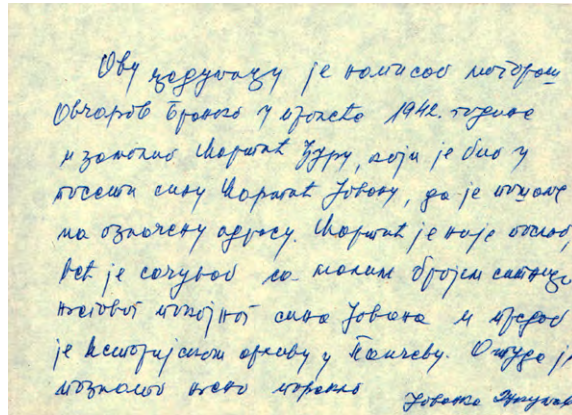 Ову задужницу је написао мотораш
Овчаров Бранко у априлу 1942. године
и замолио Мартић Ђуру, који је био у
посети сину Мартић Јовану, да је пошаље
на означену адресу. Мартић је није послао,
већ је сачувао са малим бројем ситница
његовог покојног сина Јована и предао
је Историјском архиву у Панчеву. Отуда је
познато њено порекло
Јованка